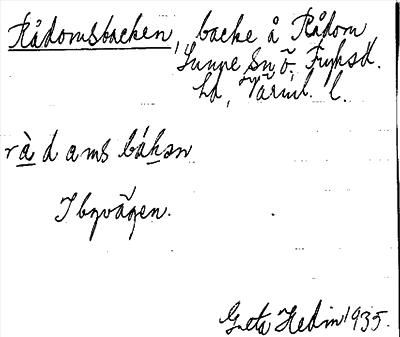 Rådomsbacken, backe å Rådom
Sunne sn ö, Fryksd.
hd, Värml. l.
ràdams báksn
I byvägen.
Greta Hedin 1935.